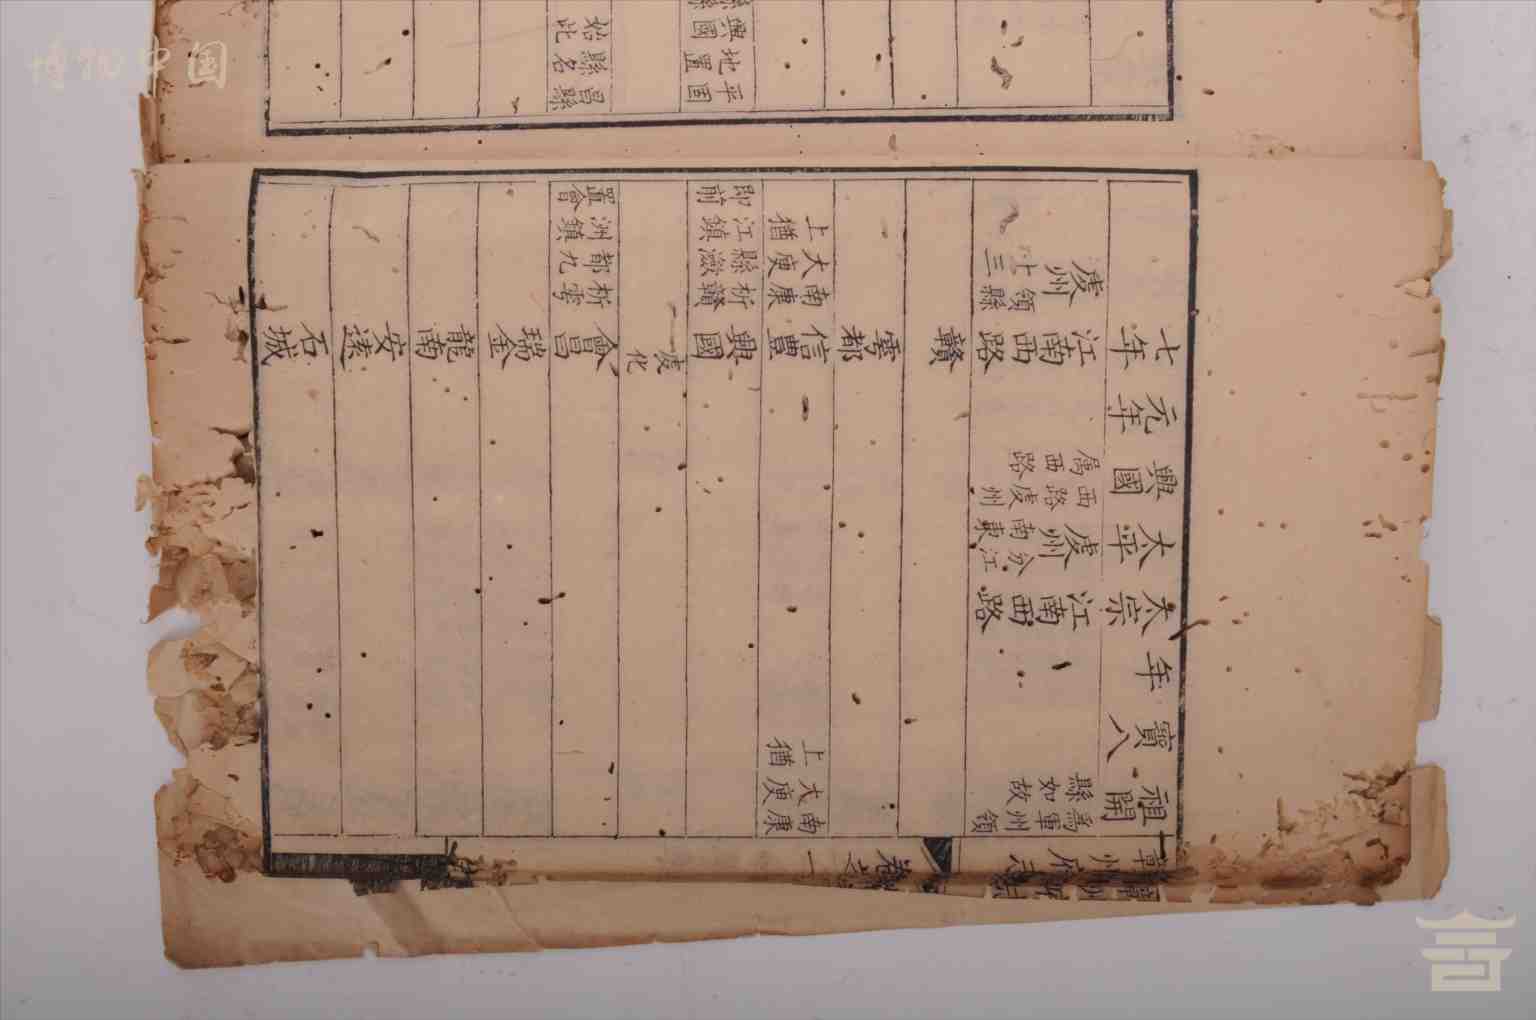 卷之一
祖開
寳八
年
太宗
太平
興國
元年
七年
為軍州領
縣如故
江南西路
虔州
分江
南東
西路虔州
属西路
江南西路
虔州
領十三縣
贛
雩都
南康
大庾
上猶
信豐
南康
大庾
上猶
興國
析贛
縣瀲
江鎮
即前
平固
地置
興國
虔化
會昌
析雩
都九
洲鎮
置會
昌縣
縣名
始此
瑞金
龍南
安遠
石城
博物中国